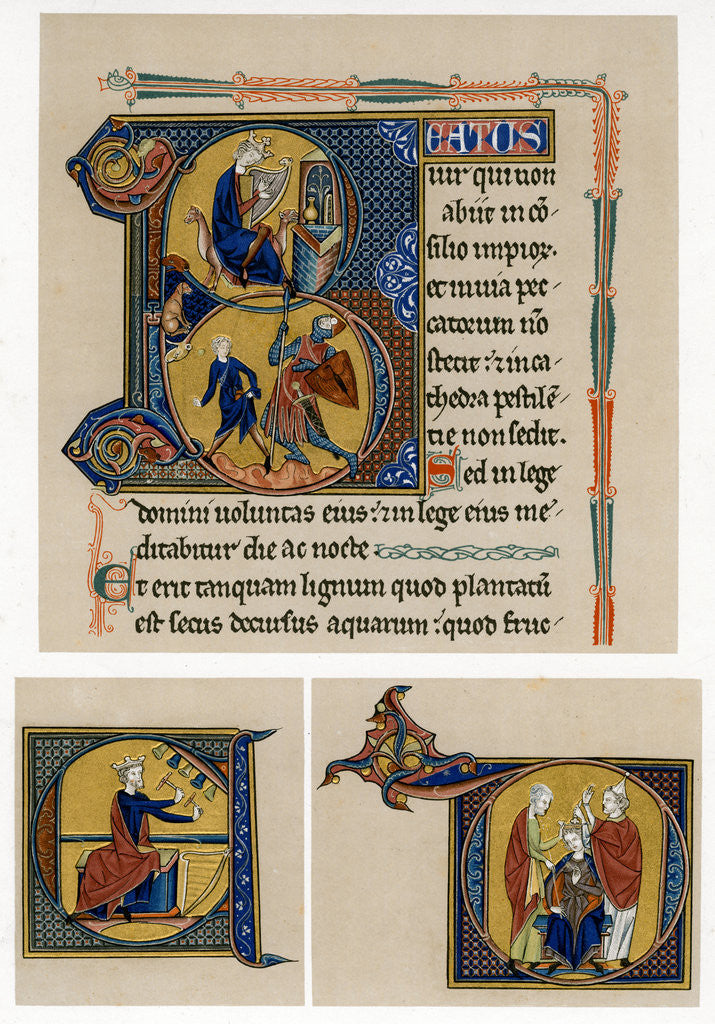 BEATUS
uir qui non
abiit in cō-
silio impioꝝ.
et in uia pec-
catorum nō
stetit : ⁊ in ca-
thedra pestilē-
tie non sedit.
Sed in lege
domini uoluntas eius : ⁊ in lege eius me-
ditabitur die ac nocte
Et erit tanquam lignum quod plantatū
est secus decursus aquarum : quod fruc-